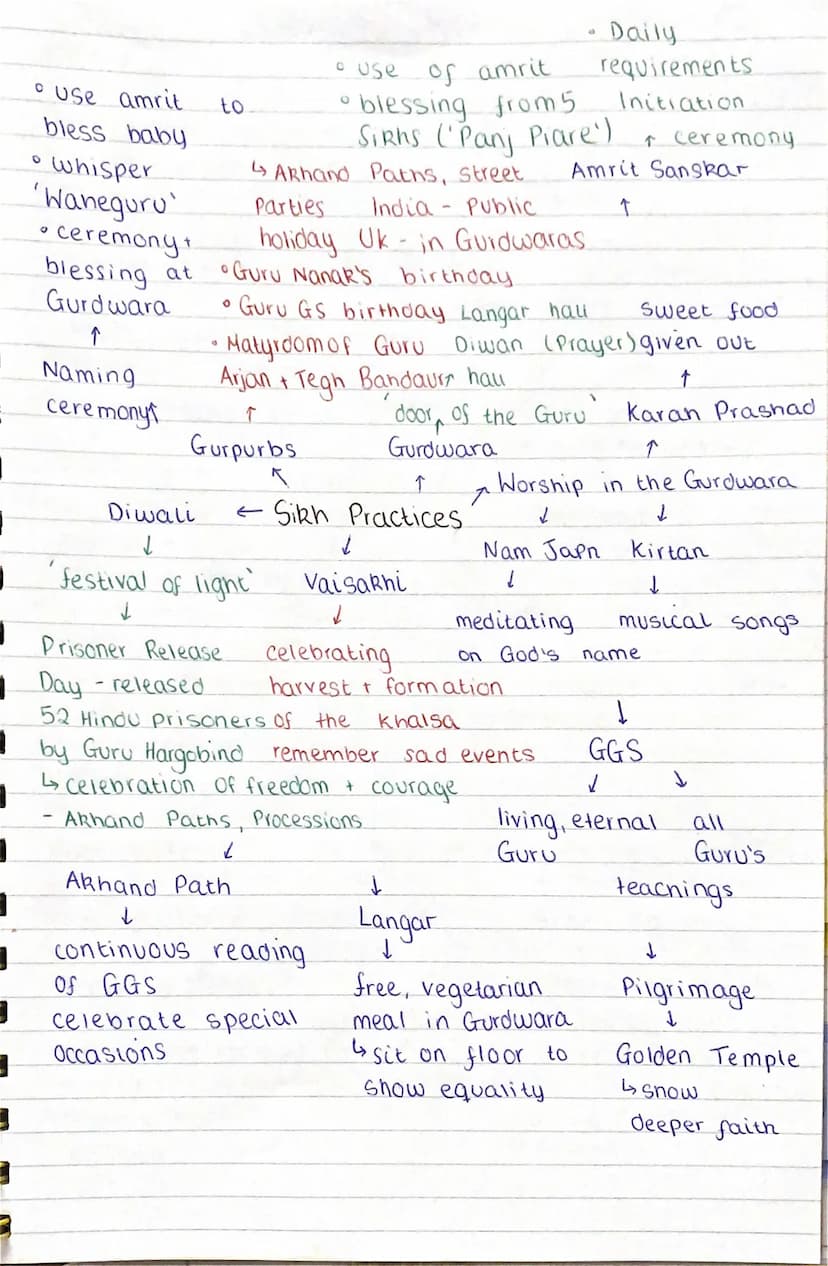 • Daily
• use of amrit requirements
• use amrit to • blessing from 5 Initiation
bless baby Sikhs ('Panj Piare') ↑ ceremony
• whisper ↳ Akhand Paths, street Amrit Sanskar
'Waheguru' parties India - Public ↑
• ceremony + holiday UK - in Gurdwaras
blessing at • Guru Nanak's birthday
Gurdwara • Guru GS birthday Langar hall sweet food
↑ • Matyrdom of Guru Diwan (Prayer) given out
Naming Arjan + Tegh Bandaurr hall ↑
ceremony ↑ ↑ 'door of the Guru' Karah Prashad
Gurpurbs Gurdwara ↑
↖ ↑ ↗ Worship in the Gurdwara
Diwali ← Sikh Practices ↓ ↓
↓ ↓ Nam Japn Kirtan
'festival of light' Vaisakhi ↓ ↓
↓ ↓ meditating musical songs
Prisoner Release celebrating on God's name
Day - released harvest + formation
52 Hindu prisoners of the Khalsa ↓
by Guru Hargobind remember sad events GGS
↳ celebration of freedom + courage ↓ ↓
- Akhand Paths, Processions living, eternal all
↓ Guru Guru's
Akhand Path ↓ teachings
↓ Langar
continuous reading ↓ ↓
of GGS free, vegetarian Pilgrimage
celebrate special meal in Gurdwara ↓
occasions ↳ sit on floor to Golden Temple
show equality ↳ show
deeper faith